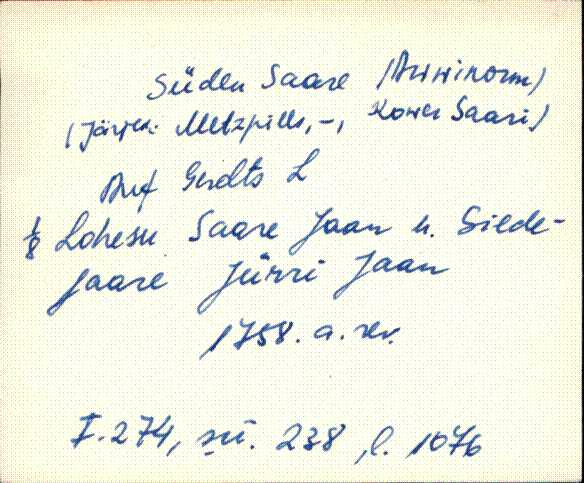 Süden Saare (Awwinorm)
(Järgn. Metzpills, -, Kower Saari)
Auf Gerdts L
1/8 Lohessu Saare Jaan u. Siede-
saare Jürri Jaan
1758. a. rev.
I. 274, sü. 238, l. 1076